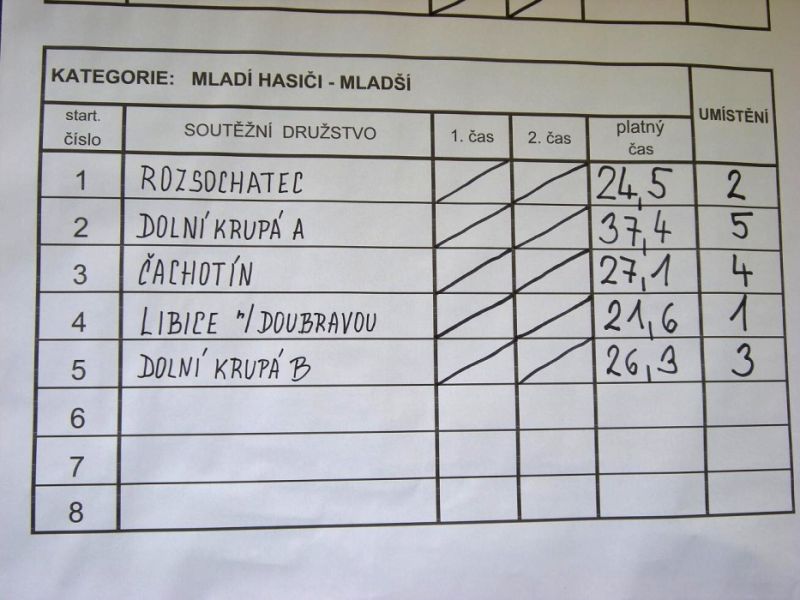 KATEGORIE: MLADÍ HASIČI - MLADŠÍ
UMÍSTĚNÍ
start. číslo SOUTĚŽNÍ DRUŽSTVO 1. čas 2. čas platný čas
1 ROZSOCHATEC 24,5 2
2 DOLNÍ KRUPÁ A 37,4 5
3 ČACHOTÍN 27,1 4
4 LIBICE n/DOUBRAVOU 21,6 1
5 DOLNÍ KRUPÁ B 26,3 3
6
7
8